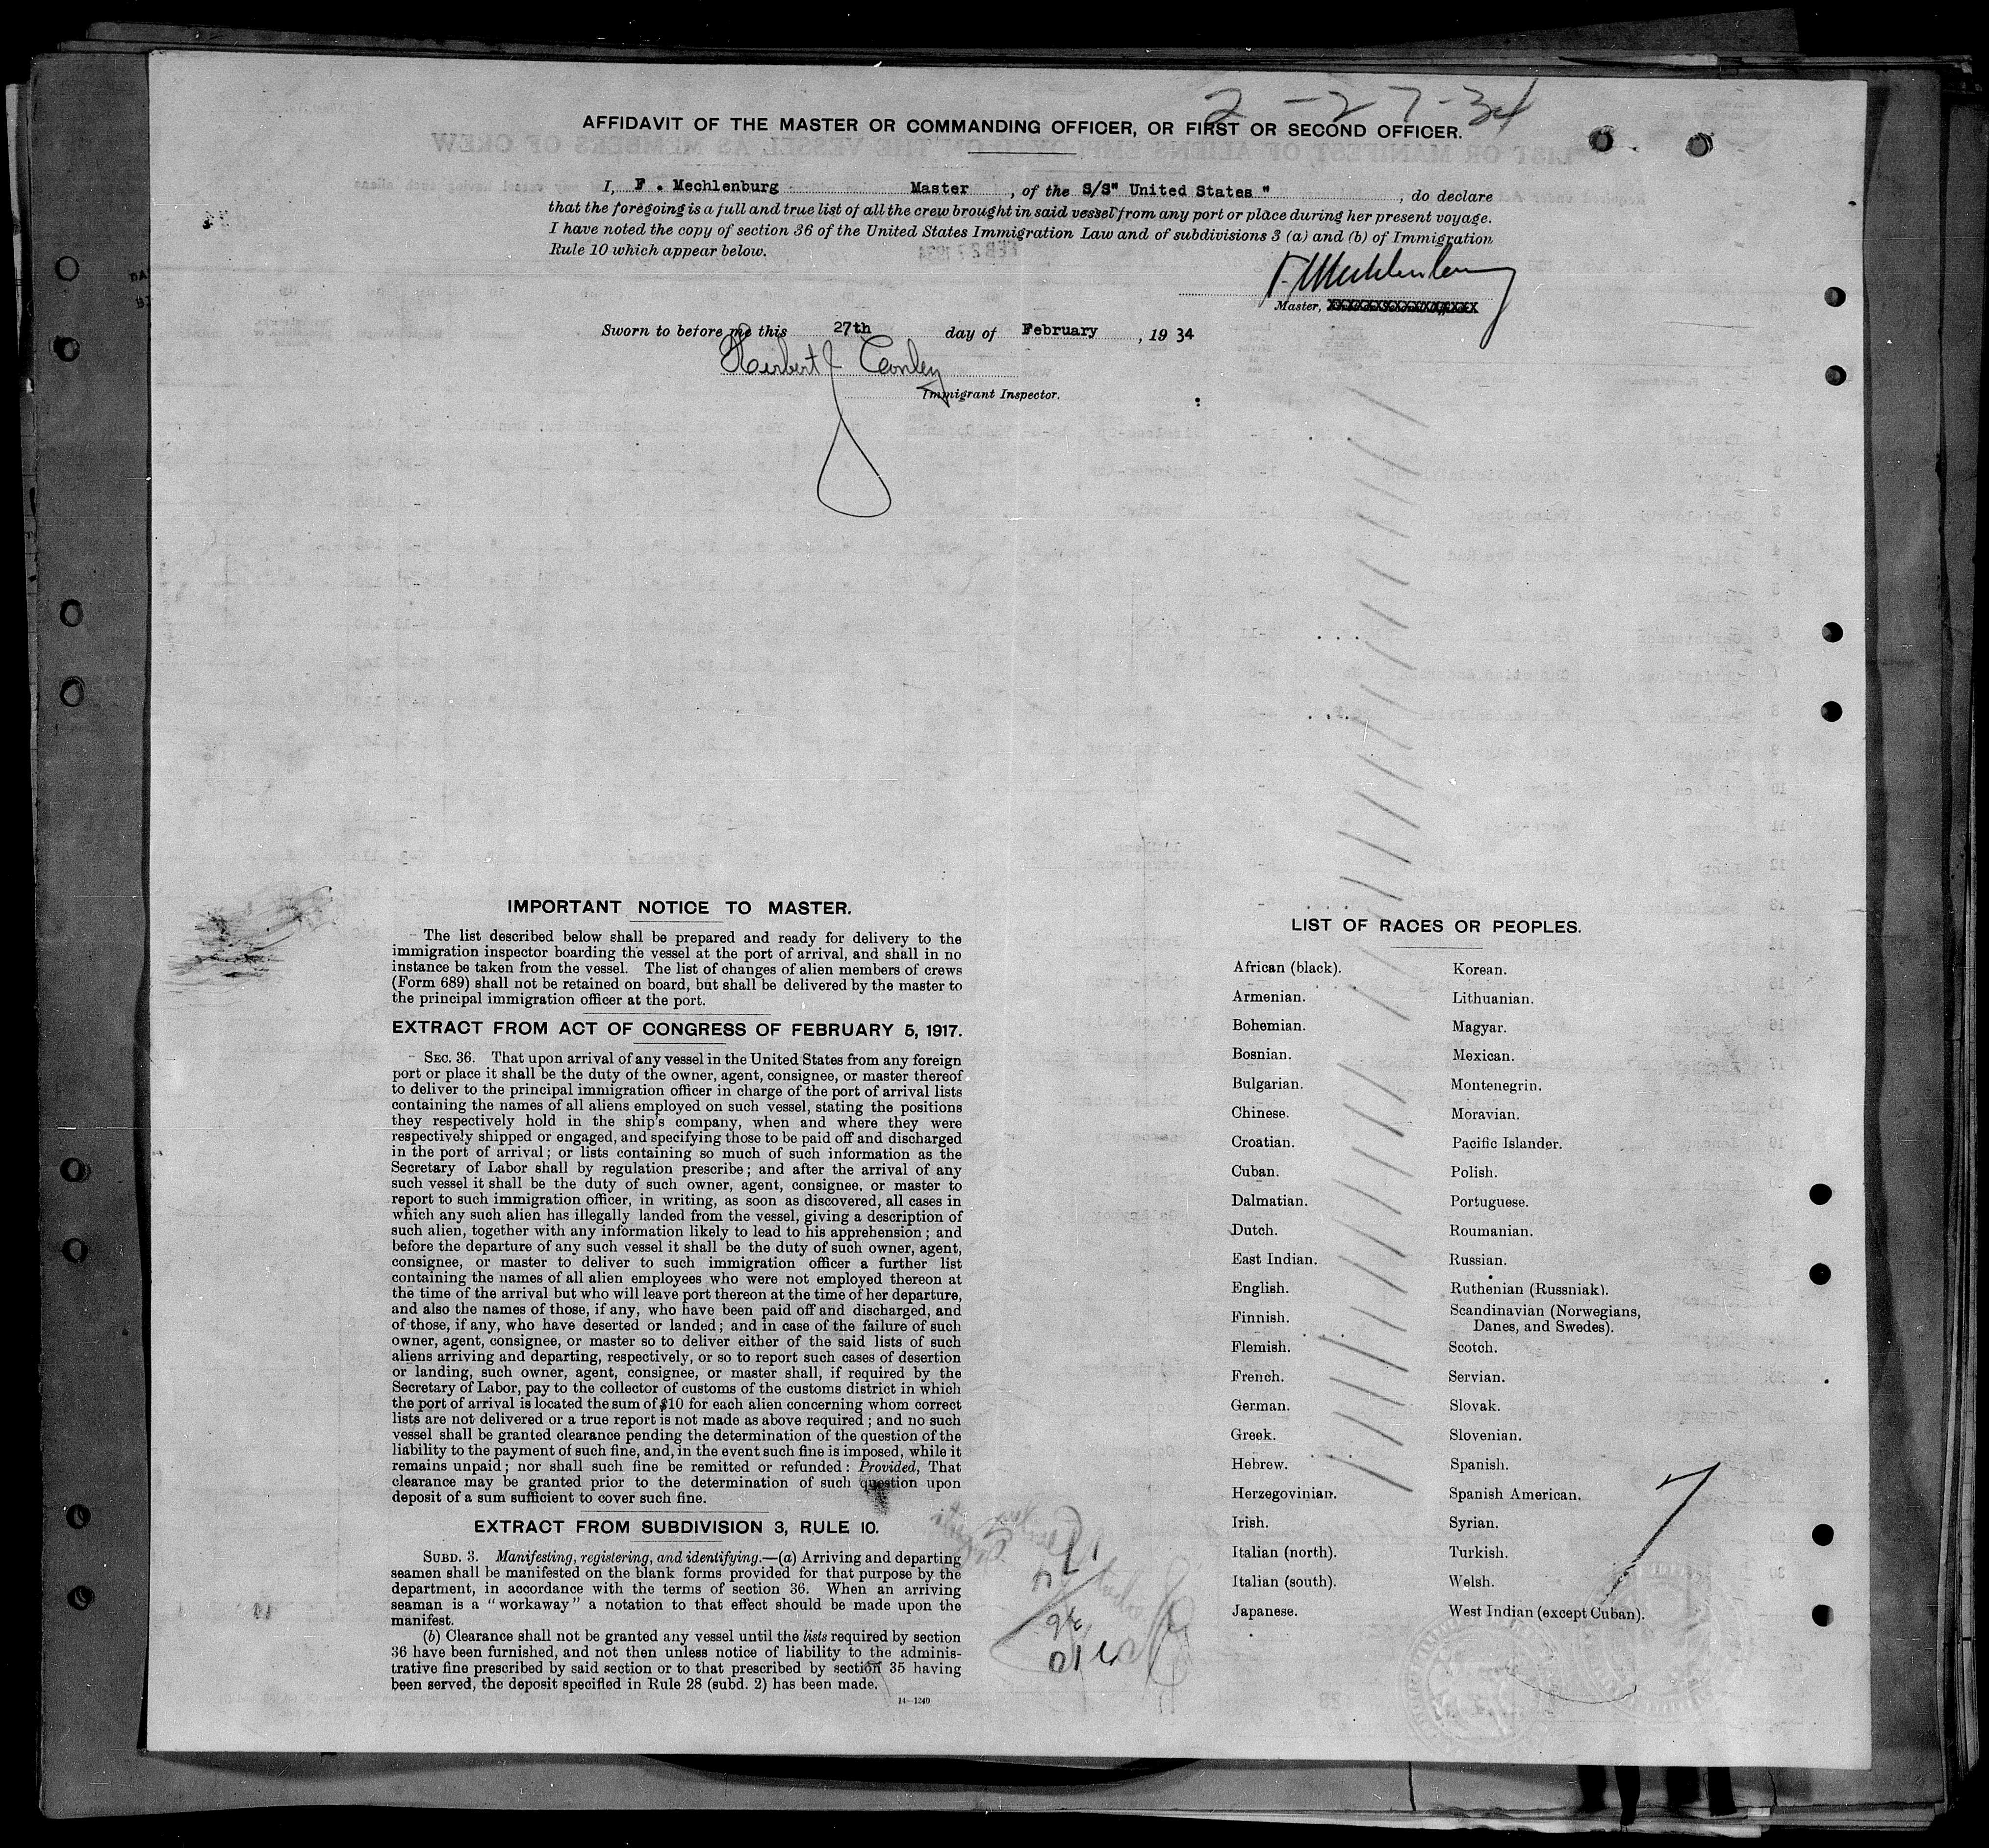 2-27-34
AFFIDAVIT OF THE MASTER OR COMMANDING OFFICER, OR FIRST OR SECOND OFFICER.
I, F. Mechlenburg Master, of the S/S" United States ", do declare
that the foregoing is a full and true list of all the crew brought in said vessel from any port or place during her present voyage.
I have noted the copy of section 36 of the United States Immigration Law and of subdivisions 3 (a) and (b) of Immigration
Rule 10 which appear below.
F. Mechlenburg
Master,
Sworn to before me this 27th day of February, 1934
Herbert J Conley
Immigrant Inspector.
IMPORTANT NOTICE TO MASTER.
The list described below shall be prepared and ready for delivery to the
immigration inspector boarding the vessel at the port of arrival, and shall in no
instance be taken from the vessel. The list of changes of alien members of crews
(Form 689) shall not be retained on board, but shall be delivered by the master to
the principal immigration officer at the port.
EXTRACT FROM ACT OF CONGRESS OF FEBRUARY 5, 1917.
SEC. 36. That upon arrival of any vessel in the United States from any foreign
port or place it shall be the duty of the owner, agent, consignee, or master thereof
to deliver to the principal immigration officer in charge of the port of arrival lists
containing the names of all aliens employed on such vessel, stating the positions
they respectively hold in the ship's company, when and where they were
respectively shipped or engaged, and specifying those to be paid off and discharged
in the port of arrival; or lists containing so much of such information as the
Secretary of Labor shall by regulation prescribe; and after the arrival of any
such vessel it shall be the duty of such owner, agent, consignee, or master to
report to such immigration officer, in writing, as soon as discovered, all cases in
which any such alien has illegally landed from the vessel, giving a description of
such alien, together with any information likely to lead to his apprehension; and
before the departure of any such vessel it shall be the duty of such owner, agent,
consignee, or master to deliver to such immigration officer a further list
containing the names of all alien employees who were not employed thereon at
the time of the arrival but who will leave port thereon at the time of her departure,
and also the names of those, if any, who have been paid off and discharged, and
of those, if any, who have deserted or landed; and in case of the failure of such
owner, agent, consignee, or master so to deliver either of the said lists of such
aliens arriving and departing, respectively, or so to report such cases of desertion
or landing, such owner, agent, consignee, or master shall, if required by the
Secretary of Labor, pay to the collector of customs of the customs district in which
the port of arrival is located the sum of $10 for each alien concerning whom correct
lists are not delivered or a true report is not made as above required; and no such
vessel shall be granted clearance pending the determination of the question of the
liability to the payment of such fine, and, in the event such fine is imposed, while it
remains unpaid; nor shall such fine be remitted or refunded: Provided, That
clearance may be granted prior to the determination of such question upon
deposit of a sum sufficient to cover such fine.
EXTRACT FROM SUBDIVISION 3, RULE 10.
SUBD. 3. Manifesting, registering, and identifying.—(a) Arriving and departing
seamen shall be manifested on the blank forms provided for that purpose by the
department, in accordance with the terms of section 36. When an arriving
seaman is a "workaway" a notation to that effect should be made upon the
manifest.
(b) Clearance shall not be granted any vessel until the lists required by section
36 have been furnished, and not then unless notice of liability to the adminis-
trative fine prescribed by said section or to that prescribed by section 35 having
been served, the deposit specified in Rule 28 (subd. 2) has been made.
14—1240
LIST OF RACES OR PEOPLES.
African (black).
Armenian.
Bohemian.
Bosnian.
Bulgarian.
Chinese.
Croatian.
Cuban.
Dalmatian.
Dutch.
East Indian.
English.
Finnish.
Flemish.
French.
German.
Greek.
Hebrew.
Herzegovinian.
Irish.
Italian (north).
Italian (south).
Japanese.
Korean.
Lithuanian.
Magyar.
Mexican.
Montenegrin.
Moravian.
Pacific Islander.
Polish.
Portuguese.
Roumanian.
Russian.
Ruthenian (Russniak).
Scandinavian (Norwegians,
Danes, and Swedes).
Scotch.
Servian.
Slovak.
Slovenian.
Spanish.
Spanish American.
Syrian.
Turkish.
Welsh.
West Indian (except Cuban).